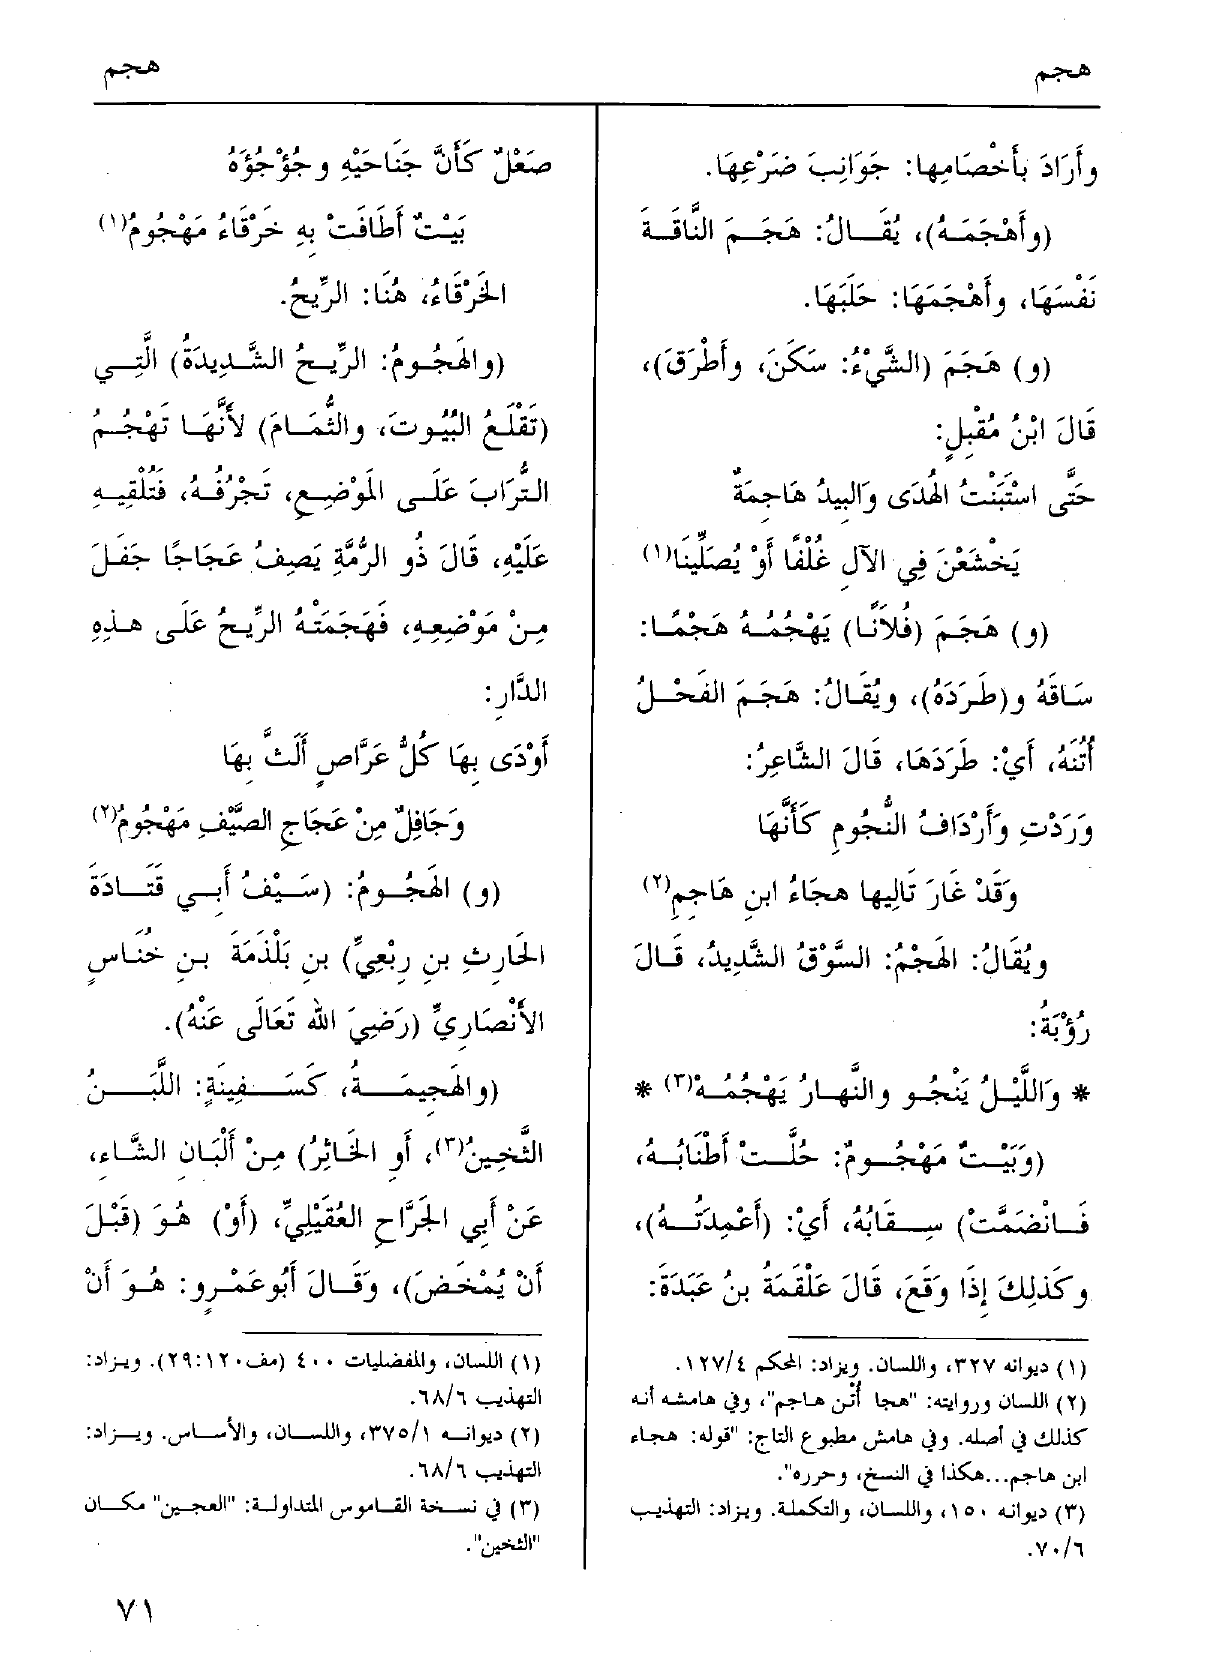 هجم
هجم
وأَرَادَ بأَخْصَامِها: جَوَانِبَ ضَرْعِهَا.
(وأَهْجَمَهُ)، يُقَالُ: هَجَمَ النَّاقَةَ
نَفْسَهَا، وأَهْجَمَهَا: حَلَبَهَا.
(و) هَجَمَ (الشَّيْءُ: سَكَنَ، وأَطْرَقَ)،
قَالَ ابْنُ مُقْبِلٍ:
حَتَّى اسْتَبَنْتُ الهُدَى وَالبِيدُ هَاجِمَةٌ
يَخْشَعْنَ فِي الآلِ غُلْفًا أَوْ يُصَلِّينَا(١)
(و) هَجَمَ (فُلاَنًا) يَهْجُمُهُ هَجْمًا:
سَاقَهُ و(طَرَدَهُ)، ويُقَالُ: هَجَمَ الفَحْلُ
أُتُنَهُ، أَيْ: طَرَدَهَا، قَالَ الشَّاعِرُ:
وَرَدْتِ وَأَرْدَافُ النُّجُومِ كَأَنَّهَا
وَقَدْ غَارَ تَالِيها هجَاءُ ابنِ هَاجِمِ(٢)
ويُقَالُ: الهَجْمُ: السَّوْقُ الشَّدِيدُ، قَالَ
رُؤْبَةُ:
* وَاللَّيْلُ يَنْجُو والنَّهارُ يَهْجُمُهْ(٣) *
(وَبَيْتٌ مَهْجُومٌ: حُلَّتْ أَطْنَابُهُ،
فَانْضَمَّتْ) سِقَابُهُ، أَيْ: (أَعْمِدَتُهُ)،
وكَذلِكَ إِذَا وَقَعَ، قَالَ عَلْقَمَةُ بنُ عَبَدَةَ:
(١) ديوانه ٣٢٧، واللسان. ويزاد: المحكم ١٢٧/٤.
(٢) اللسان وروايته: "هجا أُتْن هاجم"، وفي هامشه أنه
كذلك في أصله. وفي هامش مطبوع التاج: "قوله: هجاء
ابن هاجم...هكذا في النسخ، وحرره".
(٣) ديوانه ١٥٠، واللسان، والتكملة. ويزاد: التهذيب
٧٠/٦.
صَعْلٌ كَأَنَّ جَنَاحَيْهِ وجُؤْجُؤَهُ
بَيْتٌ أَطَافَتْ بِهِ خَرْقَاءُ مَهْجُومُ(١)
الخَرْقَاءُ، هُنَا: الرِّيحُ.
(والهَجُومُ: الرِّيحُ الشَّدِيدَةُ) الَّتِي
(تَقْلَعُ البُيُوتَ، والثُّمَامَ) لأَنَّهَا تَهْجُمُ
التُّرَابَ عَلَى المَوْضِعِ، تَجْرُفُهُ، فَتُلْقِيهِ
عَلَيْهِ، قَالَ ذُو الرُّمَّةِ يَصِفُ عَجَاجًا جَفَلَ
مِنْ مَوْضِعِهِ، فَهَجَمَتْهُ الرِّيحُ عَلَى هذِهِ
الدَّارِ:
أَوْدَى بِهَا كُلُّ عَرَّاصٍ أَلَثَّ بِهَا
وَجَافِلٌ مِنْ عَجَاجِ الصَّيْفِ مَهْجُومُ(٢)
(و) الهَجُومُ: (سَيْفُ أَبِي قَتَادَةَ
الحَارِثِ بنِ رِبْعِيٍّ) بنِ بَلْذَمَةَ بنِ خُنَاسٍ
الأَنْصَارِيِّ (رَضِيَ الله تَعَالَى عَنْهُ).
(والهَجِيمَةُ، كَسَفِينَةٍ: اللَّبَنُ
الثَّخِينُ(٣)، أَو الخَاثِرُ) مِنْ أَلْبَانِ الشَّاءِ،
عَنْ أَبِي الجَرَّاحِ العُقَيْلِيِّ، (أَوْ) هُوَ (قَبْلَ
أَنْ يُمْخَضَ)، وَقَالَ أَبُوعَمْرٍو: هُوَ أَنْ
(١) اللسان، والمفضليات ٤٠٠ (مف١٢٠:٢٩). ويزاد:
التهذيب ٦٨/٦.
(٢) ديوانه ٣٧٥/١، واللسان، والأساس. ويزاد:
التهذيب ٦٨/٦.
(٣) في نسخة القاموس المتداولة: "العجين" مكان
"الثخين".
٧١